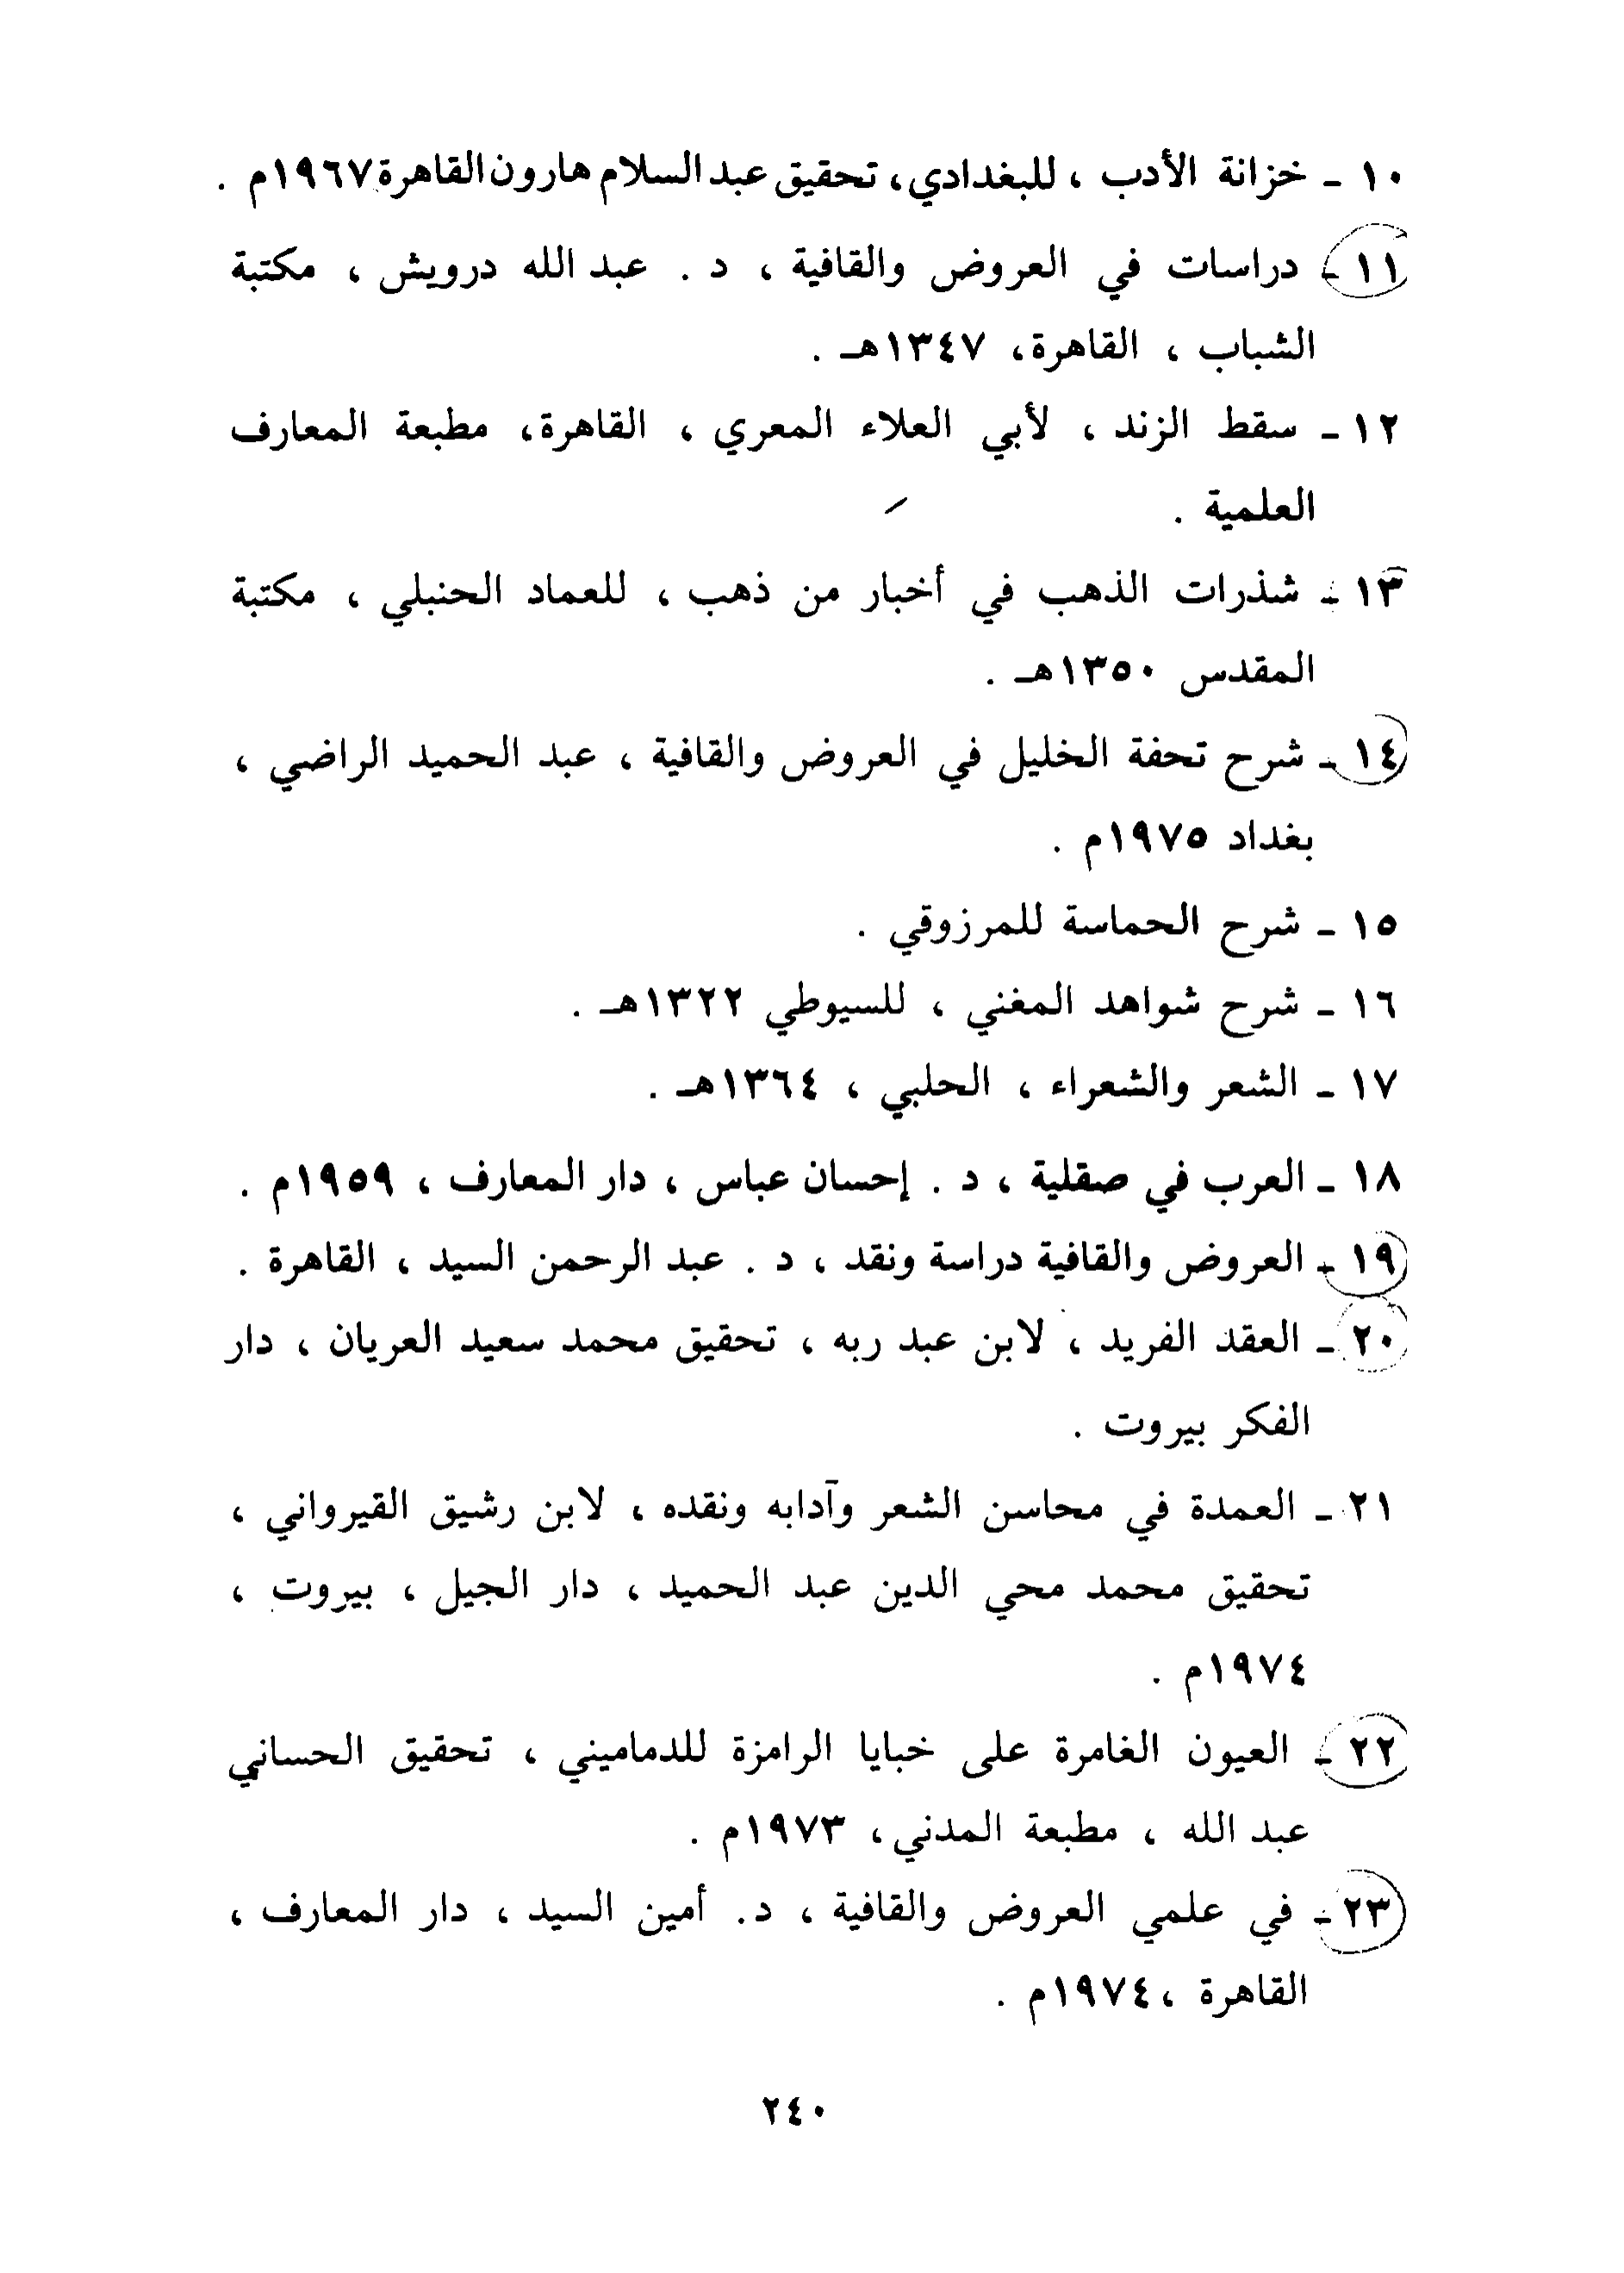 ١٠ ـ خزانة الأدب ، للبغدادي، تحقيق عبد السلام هارون القاهرة ١٩٦٧م .
١١ ـ دراسات في العروض والقافية ، د . عبد الله درويش ، مكتبة
الشباب ، القاهرة، ١٣٤٧هـ .
١٢ ـ سقط الزند ، لأبي العلاء المعري ، القاهرة، مطبعة المعارف
العلمية .
١٣ ـ شذرات الذهب في أخبار من ذهب ، للعماد الحنبلي ، مكتبة
المقدس ١٣٥٠هـ .
١٤ ـ شرح تحفة الخليل في العروض والقافية ، عبد الحميد الراضي ،
بغداد ١٩٧٥م .
١٥ ـ شرح الحماسة للمرزوقي .
١٦ ـ شرح شواهد المغني ، للسيوطي ١٣٢٢هـ .
١٧ ـ الشعر والشعراء ، الحلبي ، ١٣٦٤هـ .
١٨ ـ العرب في صقلية ، د . إحسان عباس ، دار المعارف ، ١٩٥٩م .
١٩ ـ العروض والقافية دراسة ونقد ، د . عبد الرحمن السيد ، القاهرة .
٢٠ ـ العقد الفريد ، لابن عبد ربه ، تحقيق محمد سعيد العريان ، دار
الفكر بيروت .
٢١ ـ العمدة في محاسن الشعر وآدابه ونقده ، لابن رشيق القيرواني ،
تحقيق محمد محي الدين عبد الحميد ، دار الجيل ، بيروت ،
١٩٧٤م .
٢٢ ـ العيون الغامرة على خبايا الرامزة للدماميني ، تحقيق الحساني
عبد الله ، مطبعة المدني، ١٩٧٣م .
٢٣ ـ في علمي العروض والقافية ، د. أمين السيد ، دار المعارف ،
القاهرة ،١٩٧٤م .
٢٤٠